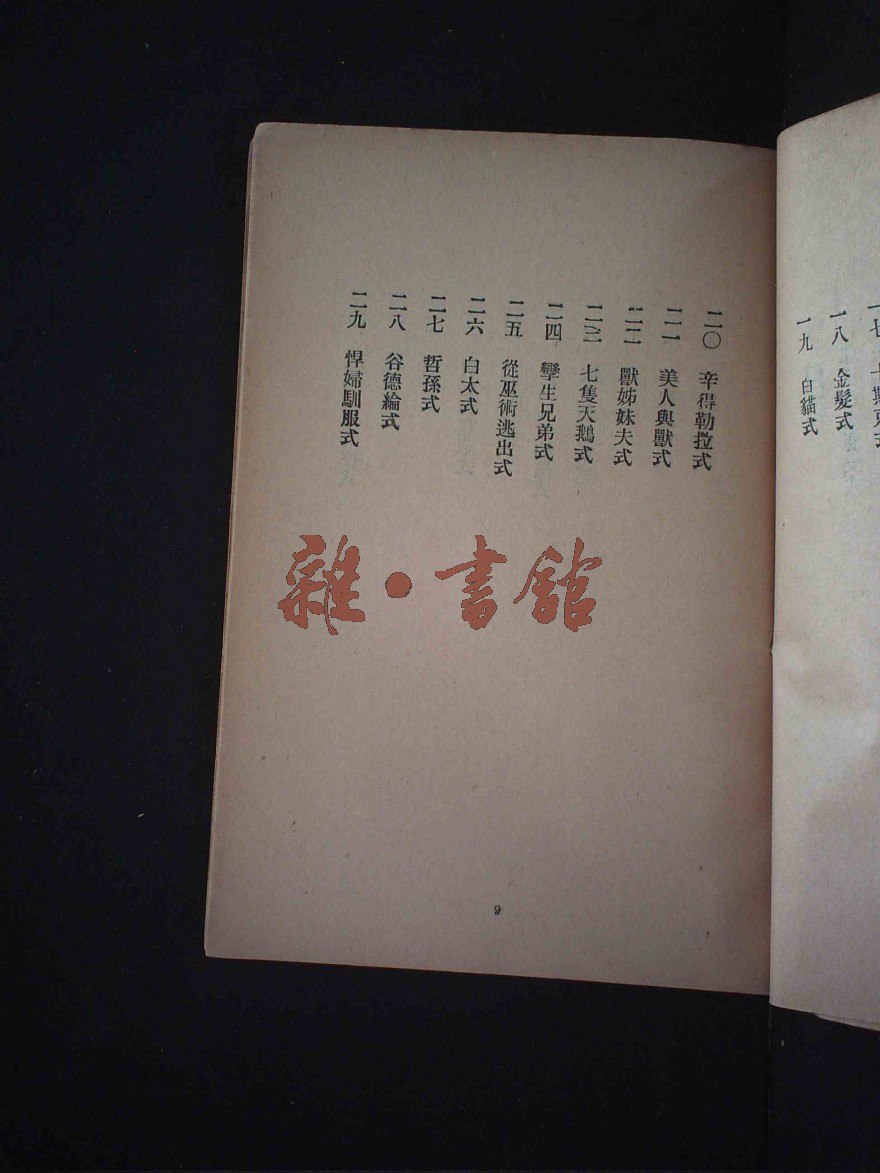 一八　金髮式
一九　白貓式
二〇　辛得勒拉式
二一　美人與獸式
二二　獸姊妹夫式
二三　七隻天鵝式
二四　孿生兄弟式
二五　從巫術逃出式
二六　白太式
二七　哲孫式
二八　谷德綸式
二九　悍婦馴服式
雜·書館
9